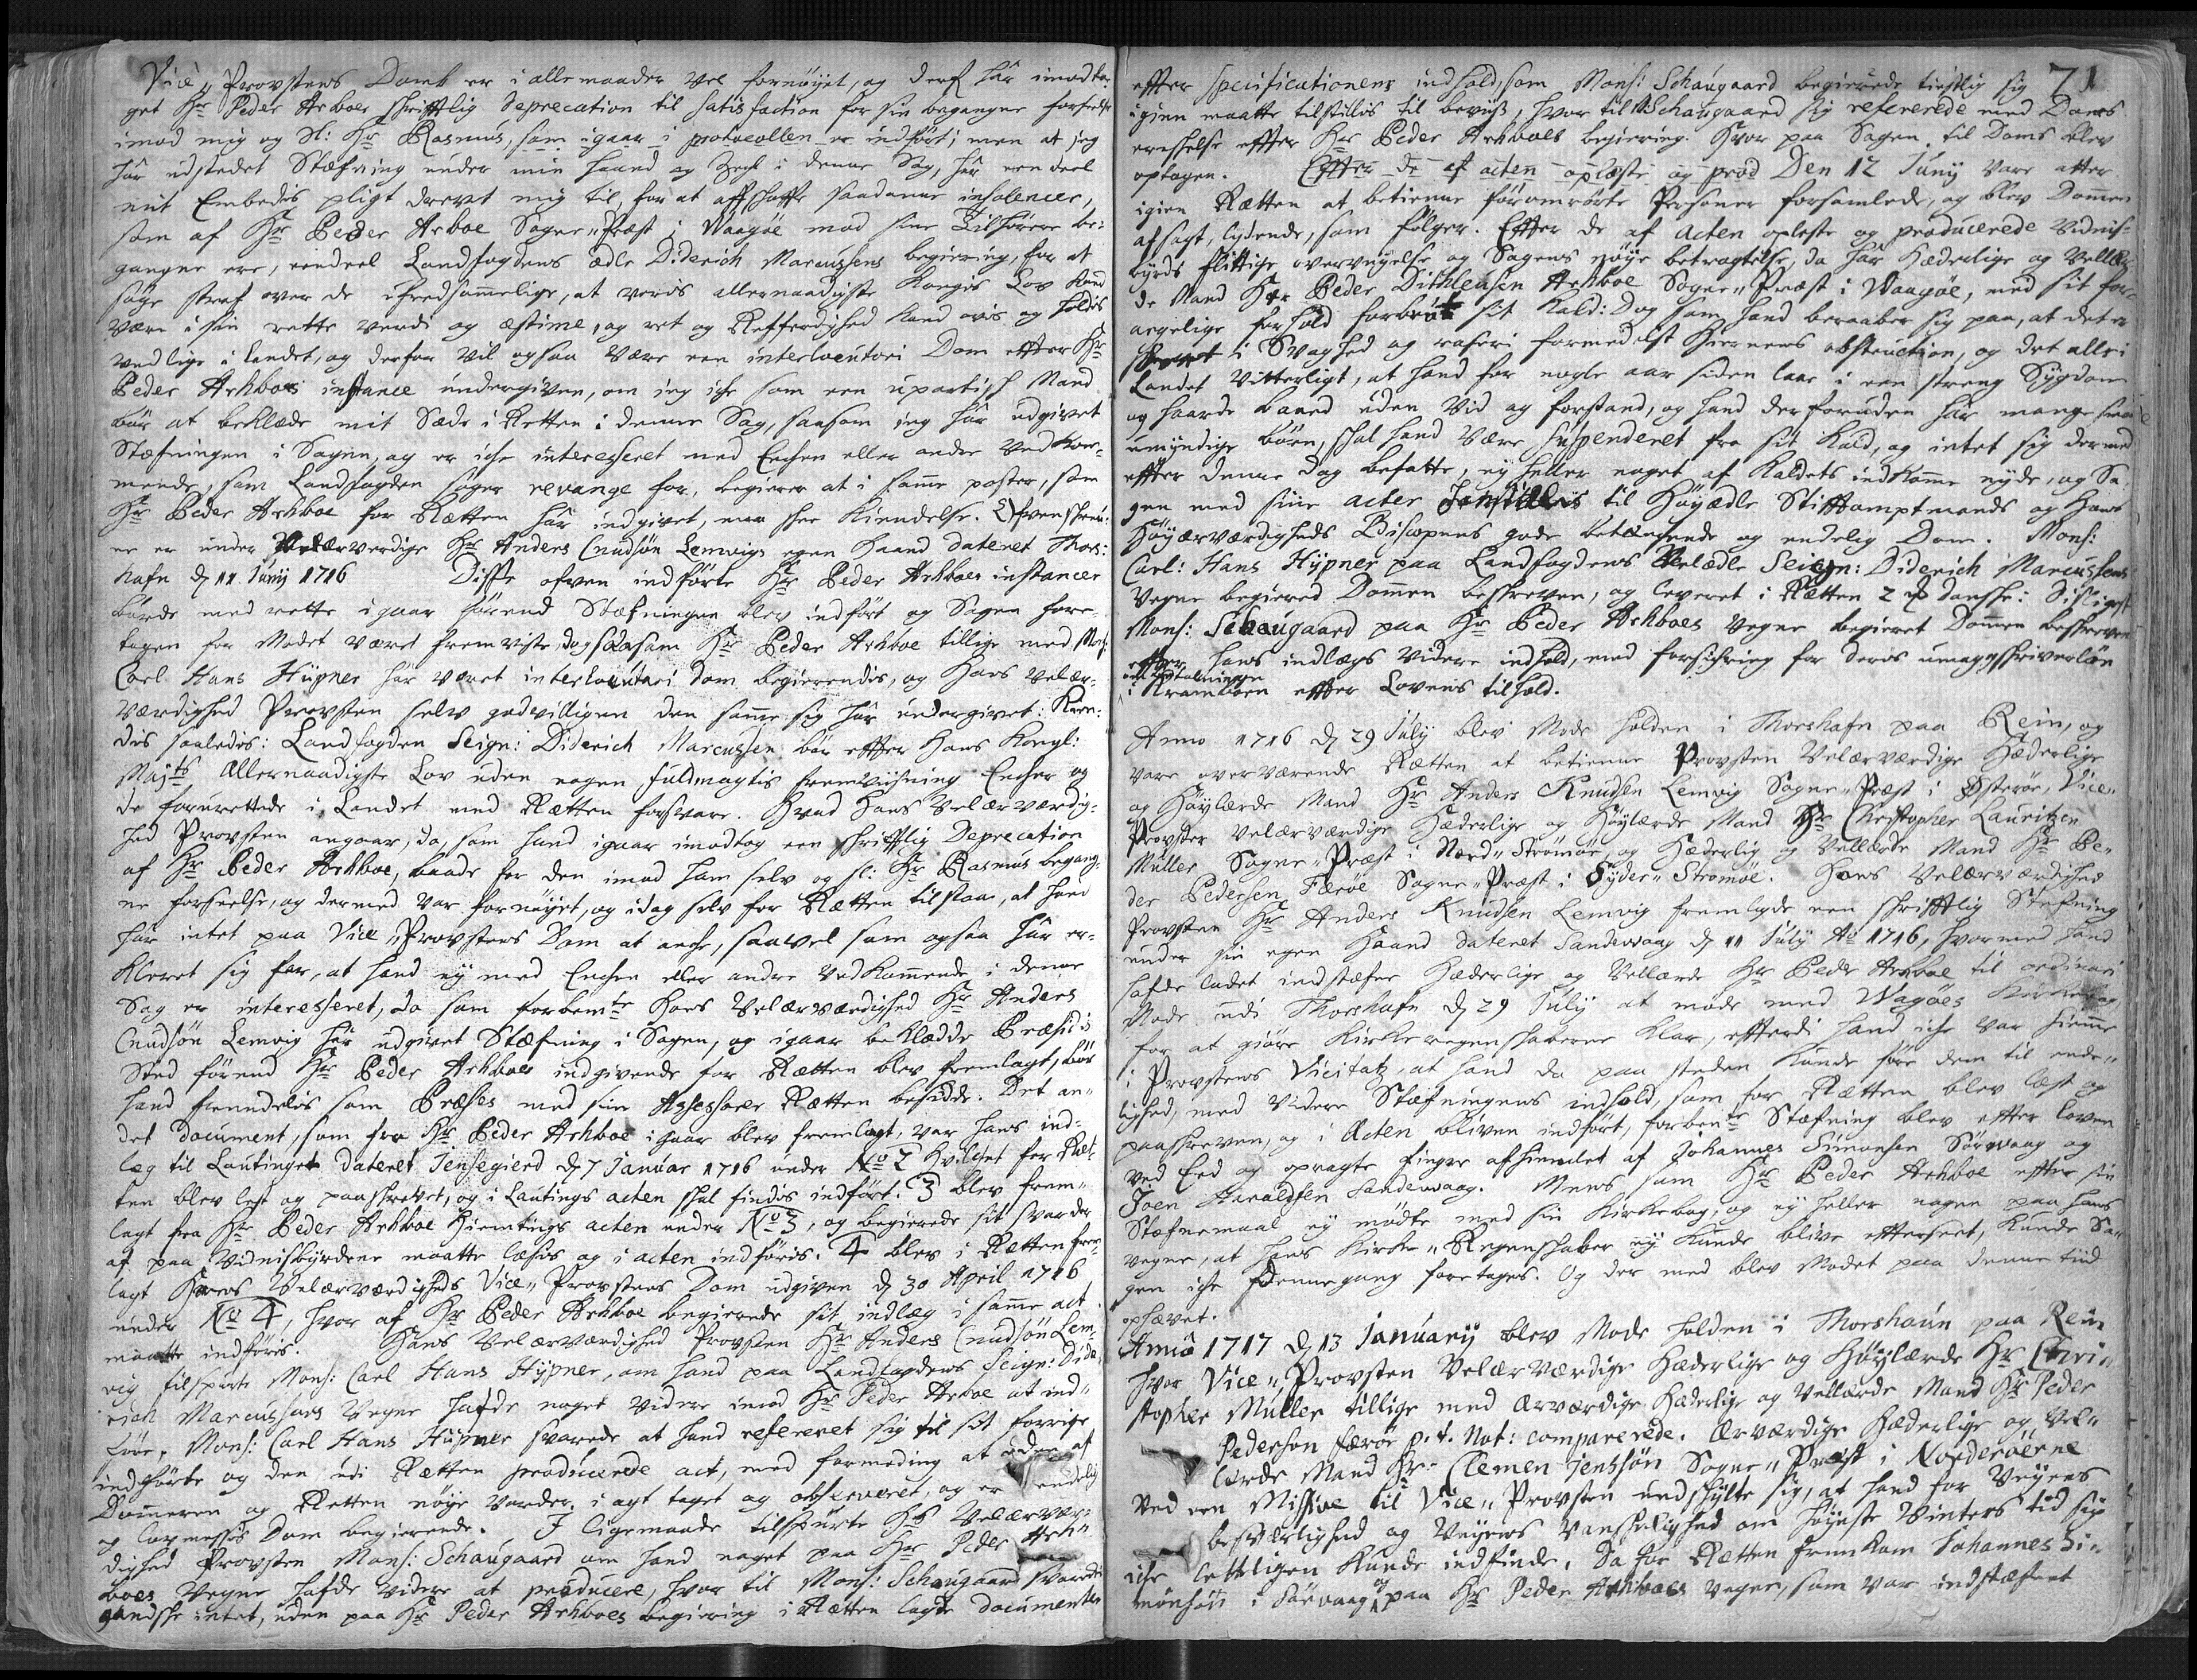 Vice„ Provstens Domb er i alle maader vel fornöyet, og derf hâr imodta„
get Hr Peder Arboes skrifftlig deprecation til satisfaction for sin begangne forseelse
imod mig og Sl: Hr Rasmus, som igaar i protocollen er indfört; men at jeg
hâr udstedet Stæfning under min haand og Zegl i denne Sag, hâr een deel
mit Embedis pligt drevt mig til, for at affskaffe saadanne insolencer,
som af Hr Peder Arboe Sogne„Præst i Waagöe mod sine Tilhörere be:
gangne ere, eendeel Landfogdens ædle Diderich Marcussens begiering, for at
söge straf over de ufredsommelige, at voris allernaadigste Kongis Lov kand
være i sin rette verdi og æstime, og ret og Retferdighed kand ovis og holdis
ved lige i landet, og derfor vil ogsaa være een interlocutori Dom effter Hr
Peder Arhboes instance undergiven, om ieg iche som een upartisch Mand
bör at beklæde mit Sæde i Retten i denne Sag, saasom ieg hâr udgivet
Stæfningen i Sagen, og er iche interesseret med Enchen eller andre vedkom„
mende, som Landfogden söger revange for, begierer at i samme poster, som
Hr Peder Arhboe for Rætten hâr indgivet, maa skee Kiendelse. Ofvenskrev:
ne er under Velærverdige Hr Anders Cnudsön Lemvigs egen Haand dateret Thors:
hafn d 11 Juny 1716 Disse ofven indförte Hr Peder Arhboes instancer
burde med rette igaar förend Stæfningen blev indfört og Sagen fore„
tagen for Modet været fremviste, dog saasom Hr Peder Arhboe tillige med Mons:
Carl Hans Hüpner hâr været interlocutori dom begierendis, og Hans Velær„
værdighed Provsten selv godvilligen den samme sig hâr undergivet: Kien:
dis saaledis: Landfogden Seign: Diderich Marcussen bör effter Hans Kongl:
Majts Allernaadigste Lov uden nogen fuldmagtis fremviisning Encher og
de forurettede i Landet med Rætten forsvare. Hvad Hans Velærværdig„
hed Provsten angaar, da, som hand igaar imodtog een skrifftlig Deprecation
af Hr Peder Arhboe, baade for den imod ham selv og sl: Hr Rasmus begang„
ne forseelse, og dermed var fornöyet, og idag selv for Rætten tilstaar, at hand
hâr intet paa Vice„Provstens Dom at anche, saavel som ogsaa hâr er„
kleret sig for, at hand ey med Enchen eller andre vedkommende i denne
Sag er interesseret, da som forbemte Hans Velærværdighed Hr Anders
Cnudsön Lemvig hâr udgivet Stæfning i Sagen, og igaar beklædde Præsidis
Sted förend Hr Peder Arhboes indgivende for Rætten blev fremlagt, bör
hand fremdelis som Præses med sine Assessorer Rætten besidde. Det an„
det document, som fra Hr Peder Arhboe i gaar blev fremlagt, var hans ind„
læg til Lautinget dateret Jensegierd d 7 Januar 1716 under No 2 hvilchet for Ræt„
ten blev lest og paaskrevet, og i Lautings acten skal findis indfört. 3 blev frem„
lagt fra Hr Peder Arhboe Hiemtings acten under No 3, og begierede sit svar der
af paa Vidnisbyrdene maatte læsis og i acten indföris. 4 blev i Rætten frem„
lagt Hans Velærværdigheds Vice„ Provstens Dom udgiven d 30 April 1716
under No 4, hvor af Hr Peder Arhboe begierede sit indlæg i samme act
maatte indföris. Hans Velærværdighed Provsten Hr Anders Cnudsön Lem„
vig tilspurte Mons: Carl Hans Hypner, om hand paa Landfogdens Seign: Dide„
rich Marcussens vegne hafde noget videre imod Hr Peder Arboe at ind„
före, Mons: Carl Hans Hüpner svarede at hand refereret sig til sit forrige
indförte og den udi Rætten producerede act, med formoding at den af
Dommeren og Retten nöye vorder i agt taget og observeret, og er endelig
og lovmessig Dom begierende. I ligemaade tilspurte Hs Velærvær„
dighed Provsten Mons: Schaugaard om hand noget paa Hr Peder Arh„
boes vegne hafde videre at producere, hvor til Mons: Schaugaard svarede
gandske intet, uden paa Hr Peder Arhboes begiering i Rætten lagde documenter
71
effter specificationens indhold, som Mons: Schaugaard begierede tienstlig sig
igien maatte tilstillis til beviis, hvor til M Schaugaard sig refererede med Doms
ershelse effter Hr Peder Arhboes begiering. Hvor paa Sagen til Doms blev
optagen. Effter de af acten oplæste og prod Den 12 Juny vare atter
igien Rætten at betienne föromrörte Personer forsamlede, og blev Dommen
afsagt, lydende, som fölger. Effter de af Acten opleste og producerede Vidnis„
byrds flittige overveyelse og Sagens nöye betragtelse, da hâr Hæderlige og Vellær„
de Mand Hr Peder Dithleusen Arhboe Sogne„Præst i Waagöe, med sit for„
argelige forhold forbrüt sit Kald: Dog som hand beraaber sig paa, at det er
skeet i Svaghed og raseri formedelst Hiernens obstruction, og det alle i
Landet vitterligt, at hand for nogle aar siden laae i een streng Sygdom
og haarde baand uden vid og forstand, og hand derforuden hâr mange smaa
umyndige börn, skal hand være suspenderet fra sit Kald, og intet sig dermed
effter denne dag befatte, ey heller noget af Kaldets indkomme nyde, og Sa„
gen med sine acter henstillis til Höyædle Stifftamptmands og Hans
Höyærværdigheds Biscopens gode betænchende og endelig Dom. Mons:
Carl: Hans Hypner paa Landfogdens Velædle Seign: Diderich Marcussens
vegne begiered Dommen beskreven, og leveret i Rætten 2 # danske: Disligest
Mons: Schaugaard paa Hr Peder Arhboes vegne begieret Dommen beskreven
effter hans indlægs videre indhold, med forsichring for deris umag, skriverlön
om betalningen
i Kramboen effter Lovens tilhold.
Anno 1716 d 29 July blev Mode holden i Thorshafn paa Rein, og
vare overværende Rætten at betienne Provsten Velærværdige Hæderlige
og Höylærde Mand Hr Anders Knudsen Lemvig Sogne„Præst i Österöe, Vice„
Provsten Velærværdige Hæderlige og Höylærde Mand Hr Christopher Lauritzen
Müller Sogne„Præst i Nord„Strömöe, og Hæderlig og Vellærde Mand Hr Pe„
der Pedersen Færöe Sogne„Præst i Syder„Strömöe. Hans Velærværdighed
Provsten Hr Anders Knudsen Lemvig fremlagde een skrifftlig Stefning
under sin egen Haand dateret Sandevaag d 11 July Ao 1716, hvormed hand
hafde ladet indstæfne Hæderlige og Vellærde Hr Peder Arhboe til ordinari
Mode udi Thorshafn d 29 July at möde med Wagöes Kirkebog
for at giöre Kirkeregenskaberne klar, effterdi hand iche var hiemme
i Provstens Vicitatz, at hand da paa steden kunde före dem til ende„
lighed, med videre Stæfningens indhold, som for Rætten blev læst og
paaskreven, og i Acten bliven indfört, forbente Stæfning blev effter loven
ved Eed og opragte finger afhiemlet af Johannes Simonsen Sörvaag og
Joen Haraldsen Sandevaag. Mens som Hr Peder Arhboe effter sin
Stæfnemaal ey mödte med sin Kirkebog, og ey heller nogen paa hans
vegne, at hans Kirke„Regenskaber ey kunde blive efterseet, kunde Sa„
gen iche dennegang foretages. Og der med blev Modet paa denne tiid
ophævet.
Anno 1717 d 13 January blev Mode holden i Thorshaun paa Rein
hvor Vice„Provsten Velærværdige Hæderlige og Höylærde Hr Chri„
stopher Müller tillige med Ærværdige Hæderlige og Vellærde Mand Hr Peder
Pederson Færöe p.t. Not: comparerede. Ærværdige Hæderlige og Vel„
lærde Mand Hr Clemen Jenssön Sogne„Præst i Norderöerne
ved een Missive til Vice„Provsten undskylte sig, at hand for Veyens
besværlighed og Veyens vanskelighed om höyeste Vinters tid sig
iche letteligen kunde indfinde. Da for Rætten fremkom Johannes Si„
mönsön i Sörvaag og paa Hr Peder Arhboes vegne, som var indstæfnet